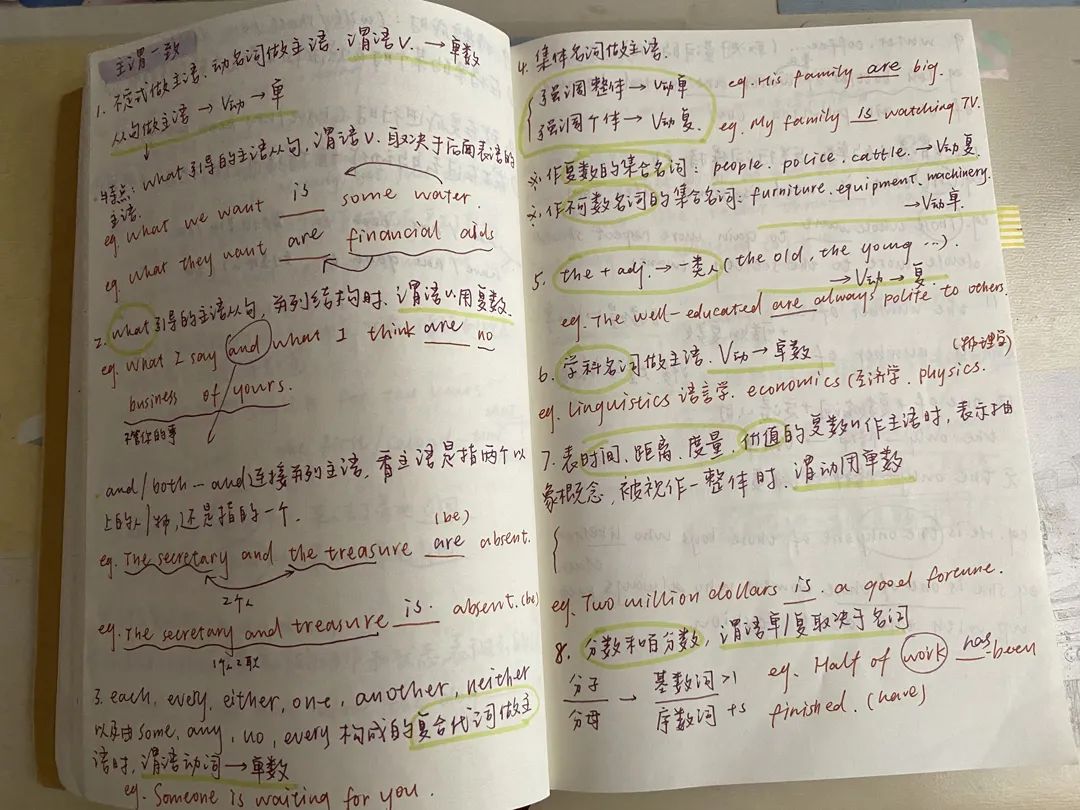 主谓一致
1. 不定式做主语、动名词做主语、谓语V. → 单数
从句做主语 → V动 → 单
特点: what引导的主语从句, 谓语V. 取决于后面表语的
主语.
eg. what we want is some water.
eg. what they want are financial aids
2. what引导的主语从句, 并列结构时, 谓语V.用复数.
eg. What I say and what I think are no
business of yours.
不管你的事
and/both … and连接并列主语, 看主语是指两个以
上的人/物, 还是指的一个.
(be)
eg. The secretary and the treasure are absent.
2个人
eg. The secretary and treasure is. absent. (be)
1个人2职
3. each, every, either, one, another, neither
以及由some, any, no, every构成的复合代词做主
语时, 谓语动词 → 单数
eg. Someone is waiting for you.
4. 集体名词做主语.
强调整体 → V动单 eg. His family are big.
强调个体 → V动复. eg. My family is watching TV.
※. 作复数的集合名词: people. police. cattle. → V动复.
※. 作不可数名词的集合名词: furniture. equipment. machinery.
→ V动单.
5. the + adj. → 一类人(the old, the young …).
→ V动 → 复.
eg. The well-educated are always polite to others.
6. 学科名词做主语. V动 → 单数
(物理学)
eg. Linguistics 语言学. economics (经济学. physics.
7. 表时间、距离、度量、价值的复数n作主语时, 表示抽
象概念, 被视作一整体时. 谓动用单数
eg. Two million dollars is. a good fortune.
8. 分数和百分数, 谓语单/复取决于名词
分子 → 基数词>1 eg. Half of work has been
分母 序数词+s finished. (have)